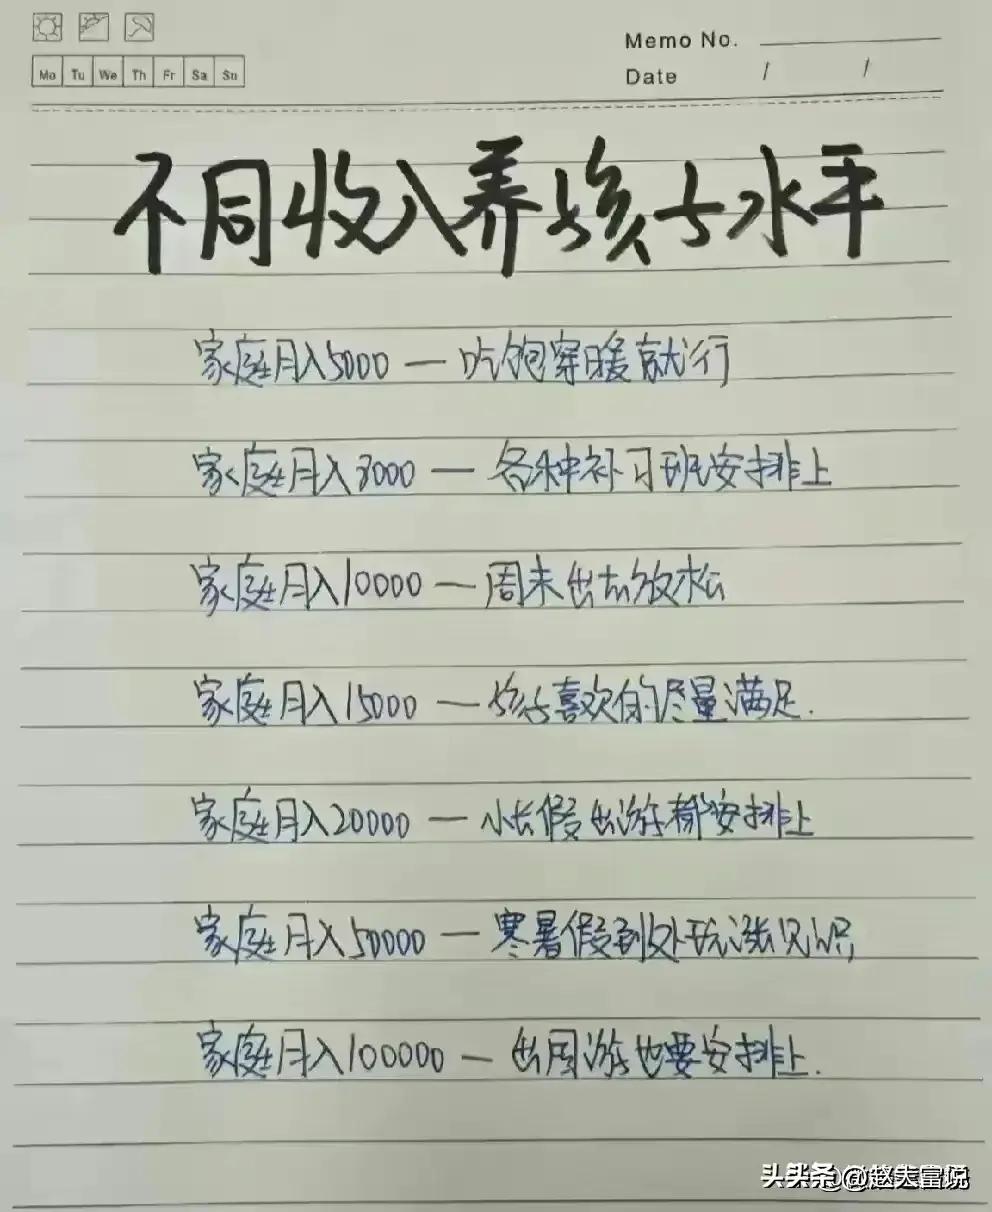 Memo No.
Mo Tu We Th Fr Sa Su
Date / /
不同收入养孩子水平
家庭月入5000 — 吃饱穿暖就行
家庭月入8000 — 各种补习班安排上
家庭月入10000 — 周末出去放松
家庭月入15000 — 孩子喜欢的尽量满足.
家庭月入20000 — 小长假出游都安排上
家庭月入50000 — 寒暑假到处玩涨见识
家庭月入100000 — 出国游也要安排上.
头条@赵夫富说